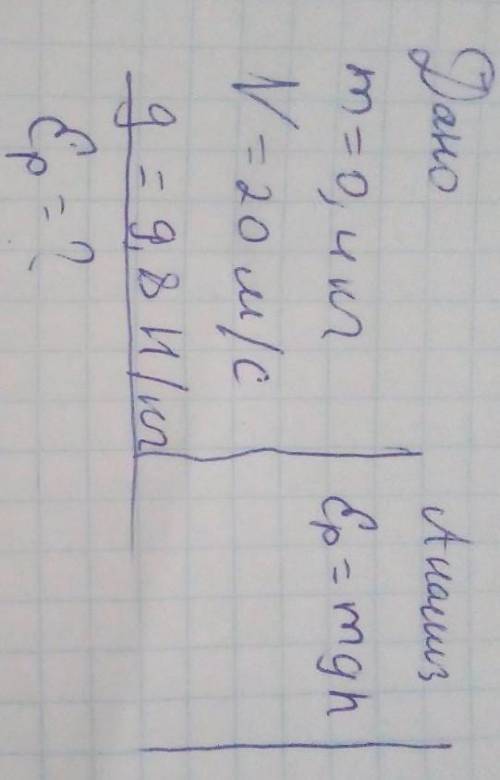 Дано
m = 0,4 кг
V = 20 м/с
g = 9,8 Н/кг
Ep = ?
Анализ
Ep = mgh